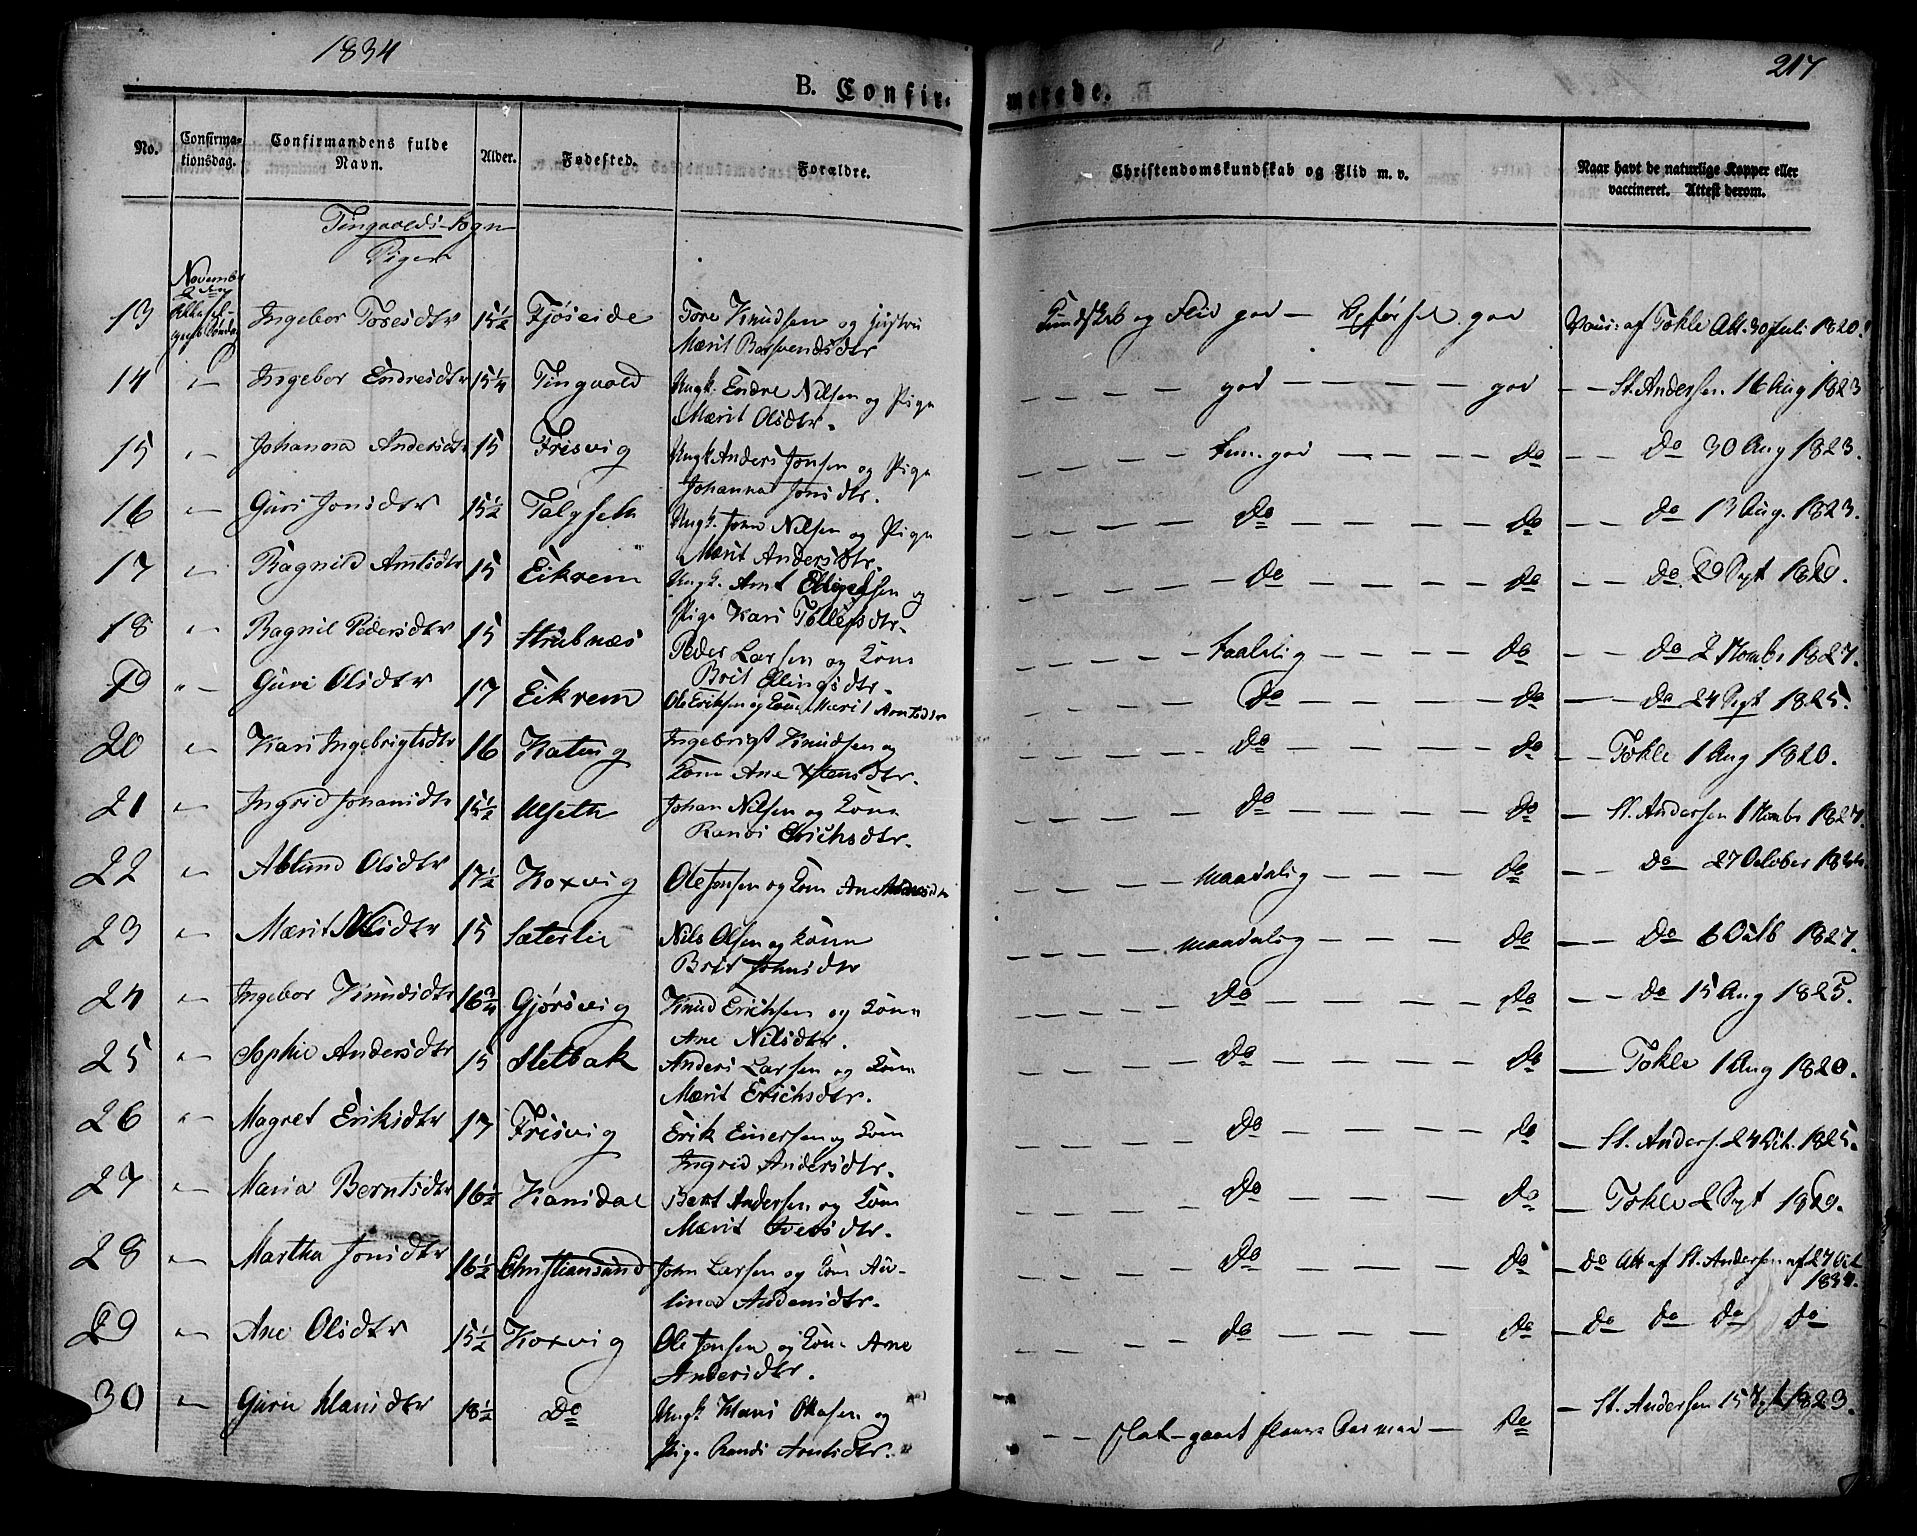 1834
217
B. Confirmerede.
No. Confirmationsdag. Confirmandens fulde Navn. Alder. Fødested. Forældre. Christendomskundskab og Flid m. v. Naar havt de naturlige Kopper eller vaccineret. Attest derom.
Tingvolds Sogn
Piger
13 Ingebor Toresdtr 15½ Fjøseide Tore Knudsen og Marit Kundskab og Flid god — Opførsel god af Tokle Att. 30 Juli 1820
14 — Ingebor Endresdtr 15¼ Tingvold Ungk. Endre Nilsen og Pige Marit Olsdtr. god — god — St. Andersen 16 Aug 1823
15 — Johanna Andersdtr 15 Frisvig Ungk Anders Jonsen og Pige Johanna Jonsdtr. god — Do — Do 30 Aug 1823.
16 — Guri Jonsdtr 15½ Ungk. John Nilsen og Pige Marit Andersdtr. Do — Do — Do 13 Aug. 1823.
17 — Ragnild Arntsdtr 15 Eikrem Ungk. Arnt og Pige Kari Do — Do — Do Sept
18 — Ragnil Pedersdtr 15 Strubnæs Peder Larsen og Kone Brit Ellingsdtr. taalelig — Do — Do 2 1827.
19 — Guri Olsdtr 17 Eikrem Ole Eriksen og Kone Marit Arntsdtr Do — Do — Do 24 Sept 1825.
20 — Kari Ingebrigtsdtr 16 Ingebrigt Knudsen og Kone Ane Do — Do — Tokle 1 Aug 1820.
21 — Ingrid Johansdtr 15½ Ulseth Johan Nilsen og Kone Randi Erichsdtr. Do — Do — St. Andersen 1 1827.
22 — Olsdtr 17½ Koxvig Ole Jonsen og Kone Ane Andersdtr maadelig — Do — Do 27 October
23 — Marit Nilsdtr 15 Sæterlie Nils Olsen og Kone Brit Johnsdtr maadelig — Do — Do 6 1827.
24 — Ingebor Knudsdtr 16¾ Gjørsvig Knud Erichsen og Kone Ane Nilsdtr. Do — Do — Do 15 Aug 1825.
25 — Sophie Andersdtr 15 Sletbak Anders Larsen og Kone Marit Erichsdtr. Do — Do — Tokle 1 Aug 1820.
26 — Magret Eriksdtr 17 Frisvig Erik Einersen og Kone Ingrid Andersdtr. Do — Do — St. Anders. 24 Oct. 1825.
27 — Maria Berntsdtr 16½ Kanidal Bernt Andersen og Kone Marit Iversdtr. Do — Do — Tokle 2 Sept
28 — Martha Jonsdtr 16½ Christiansund John Larsen og Kone Do — Do — Do Att af St. Andersen af 27 Oct 1834.
29 — Ane Olsdtr 15½ Koxvig Ole Jonsen og Kone Ane Andersdtr. Do — Do — Do Do Do Do
30 — Guru Klausdtr 18½ Do Ungk Klaus og Pige Randi Arntsdtr. — Do — St. Andersen 15 1823.